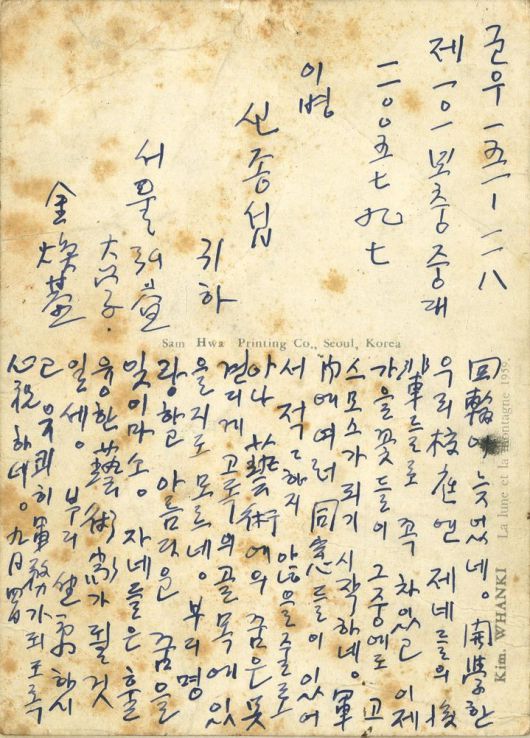 군우 一五一 - 二八
제 一○一 보충중대
二○○五七九七
이병
신종섭
귀하
서울 弘益
大學.
金煥基
Sam Hwa Printing Co., Seoul, Korea
回輪이 늦었네。開學한
우리 校庭엔 제네들의 後
輩들로 꼭 차있고 이제
가을꽃들이 그중에도 고
스모스가 피기 시작하네。軍
內에 여러 同窓들이 있어
서 적적하지 않을줄로
아나 藝術에의 꿈은 못
견디게 고독의 골목에 있
을지도 모르네。부디 명
랑하고 아름다운 꿈을
잊이마소。자네들은 훌
륭한 藝術家가 될것
일세。부디 하시
고 유쾌히 軍務가 되도록
心祝하네。九月
Kim. WHANKI La lune et la montagne 1959.